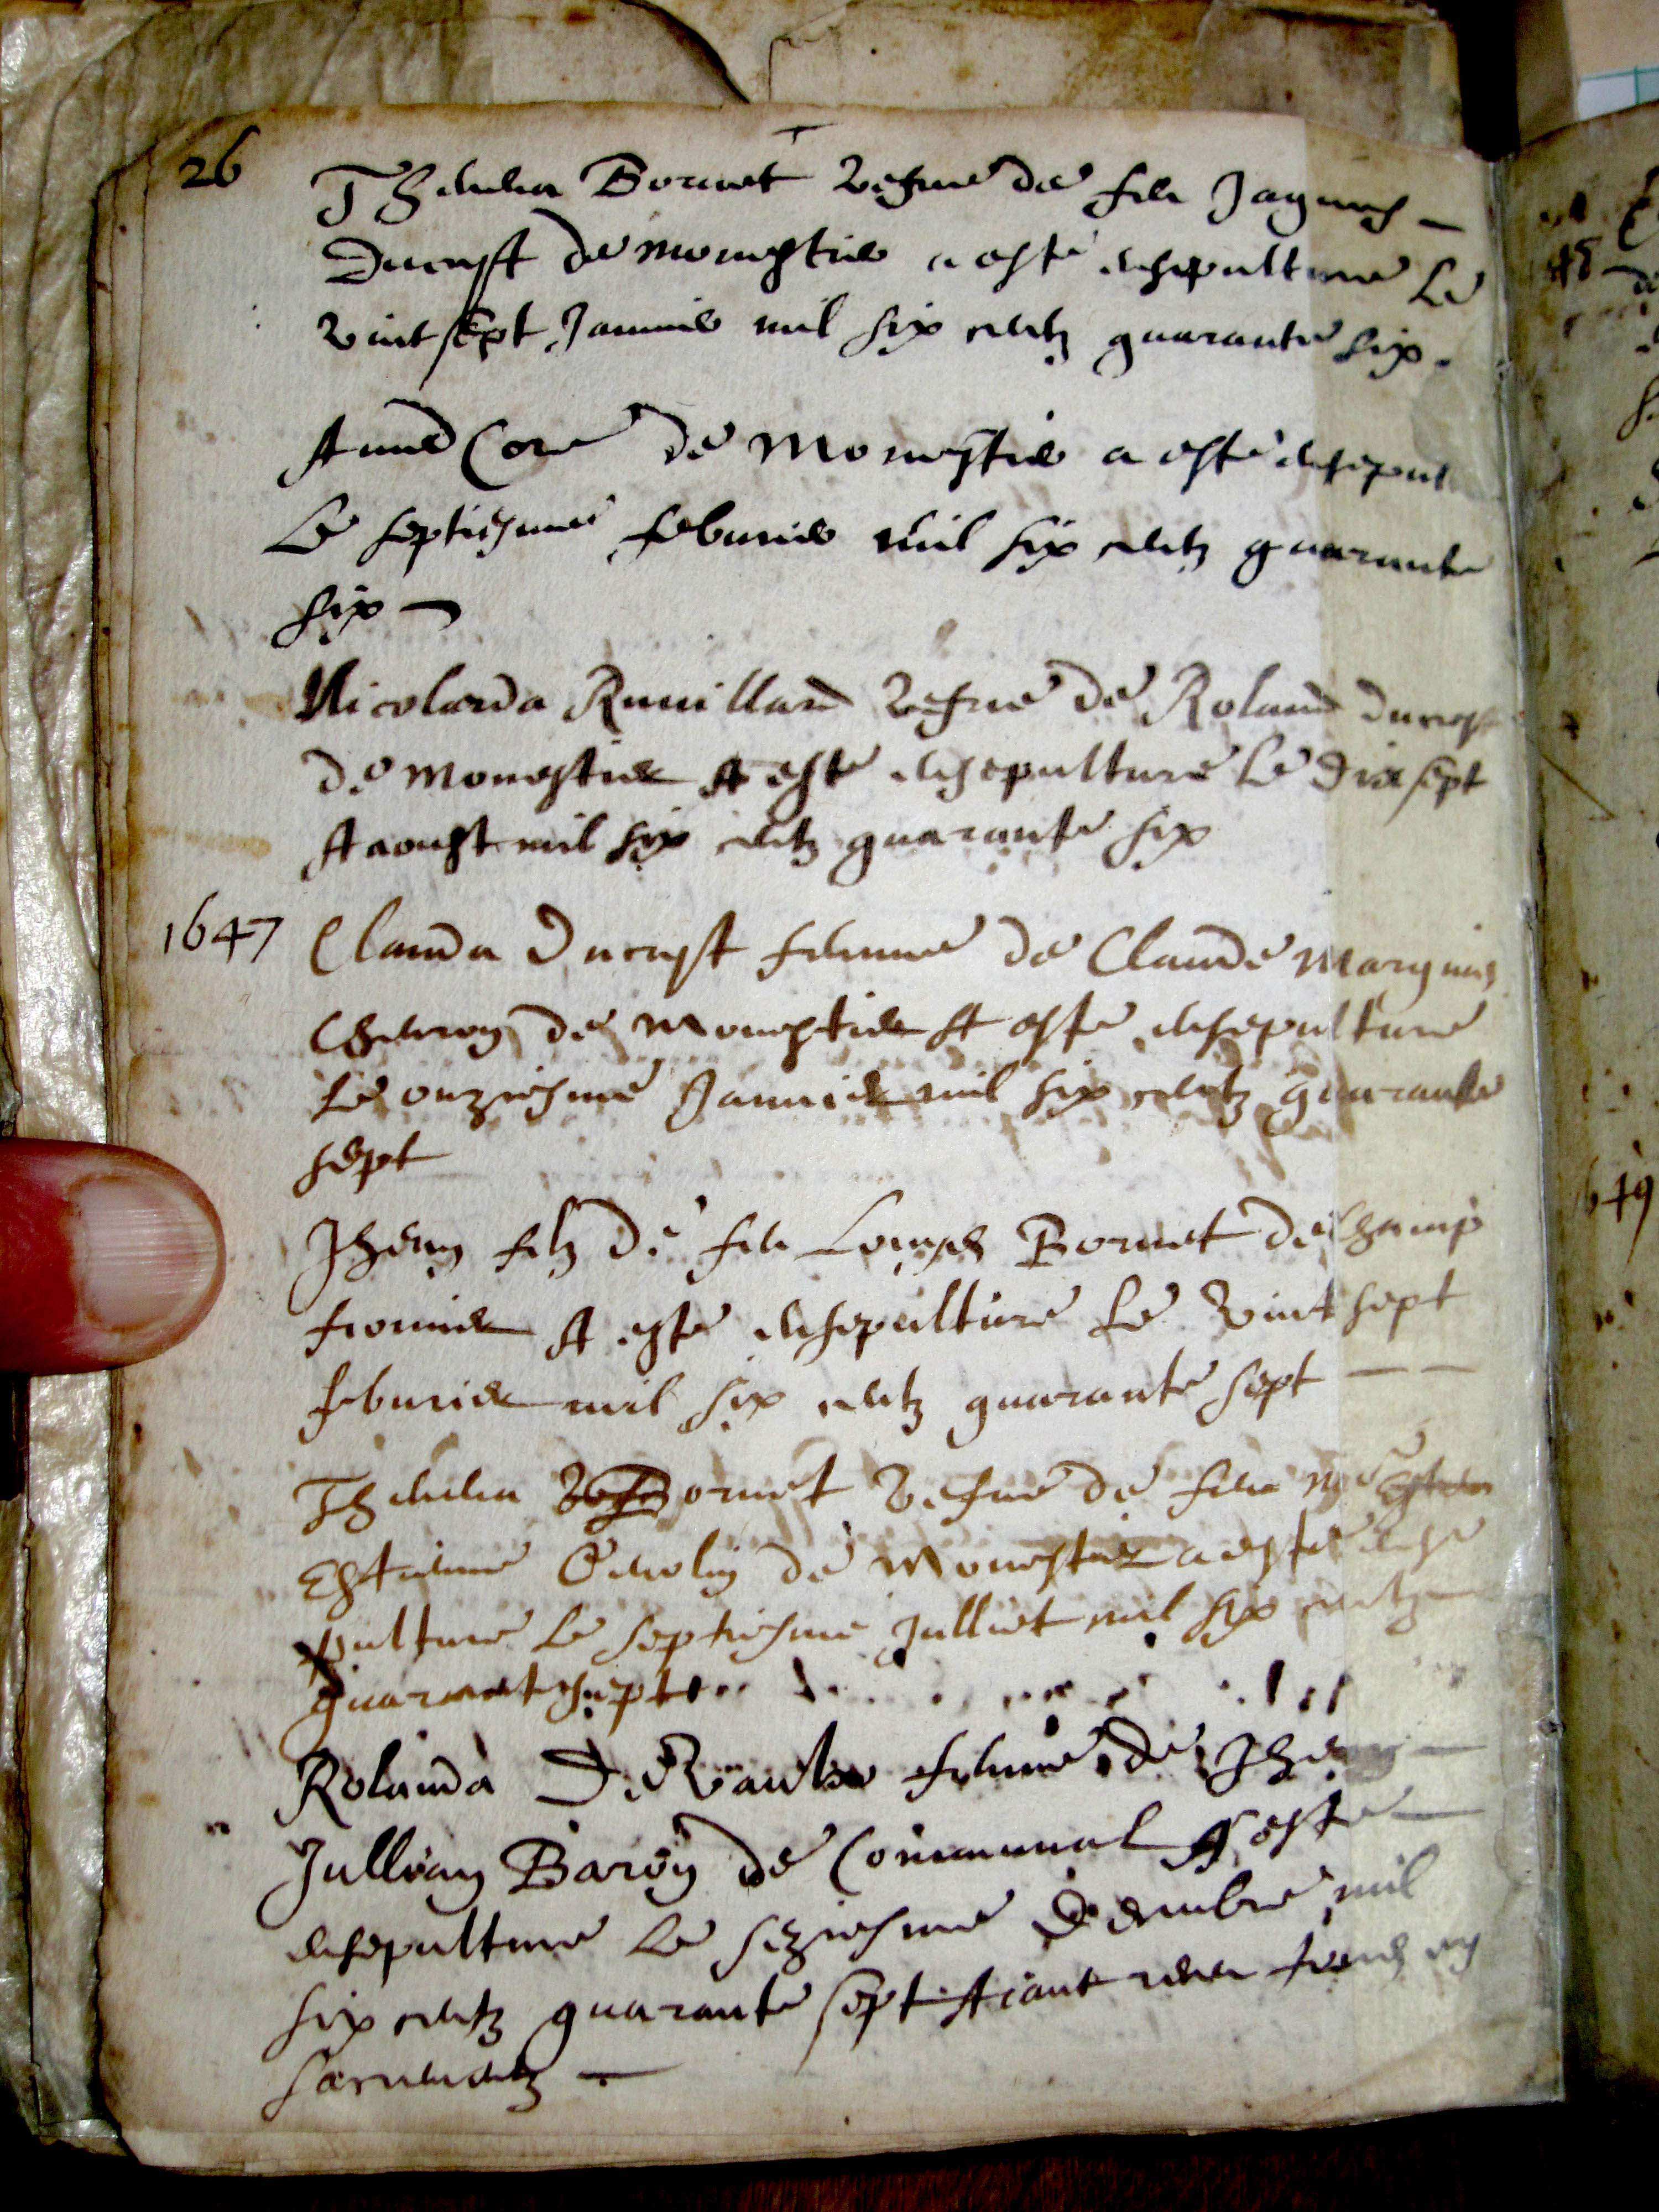 26
Thevena Bornet vefue de feu Jaques
Ducrest de monestier a esté ensepulture Le
vintsept Janvier mil six centz quarante six.
Anne Core de Monestier a esté ensepul
Le septiesme febvrier mil six centz quarante
six
Nicolarda Ruvillard vefue de Roland ducrest
de monestier A esté ensepulture Le dix sept
Aaoust mil six centz quarante six
1647
Clauda Ducrest femme de Claude
de Monestier A esté ensepulture
Le onziesme Janvier mil six centz quarante
sept
Jhean filz de feu Louys Bornet de champ
fromier A esté ensepulture Le vint sept
febvrier mil six centz quarante sept
Thevena ornet vefue de feu
Estienne de Monestier a esté ense
pulture Le septiesme Julliet mil six centz
quarante sept
Rolanda femme de Jhean
Jullian Baron de Communal A esté
ensepulture Le seziesme decembre mil
six centz quarante sept Aiant receu tous les
sacrementz